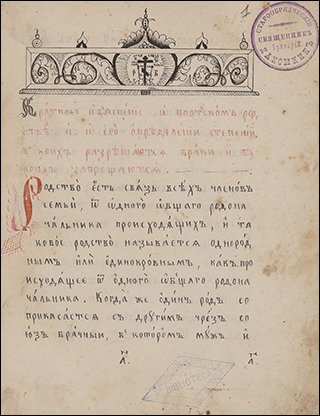 1
СТАРООБРЯДЧЕСКІЙ
СВЯЩЕННИКЪ
Краткое объясненіе о плотскомъ род
ствѣ и о его опредѣленіи степени,
в коихъ разрѣшаются браки и въ
коихъ запрещаются.
Родство есть связь всѣхъ членовъ
семьи, ѿ одного общаго родона
чальника происходящихъ, и та
ковое родство называется однород
нымъ или единокровнымъ, какъ про
исходящее ѿ одного общаго родона
чальника. Когда же одинъ родъ со
прикасается съ другимъ чрезъ со
юзъ брачный, в которомъ мужъ и